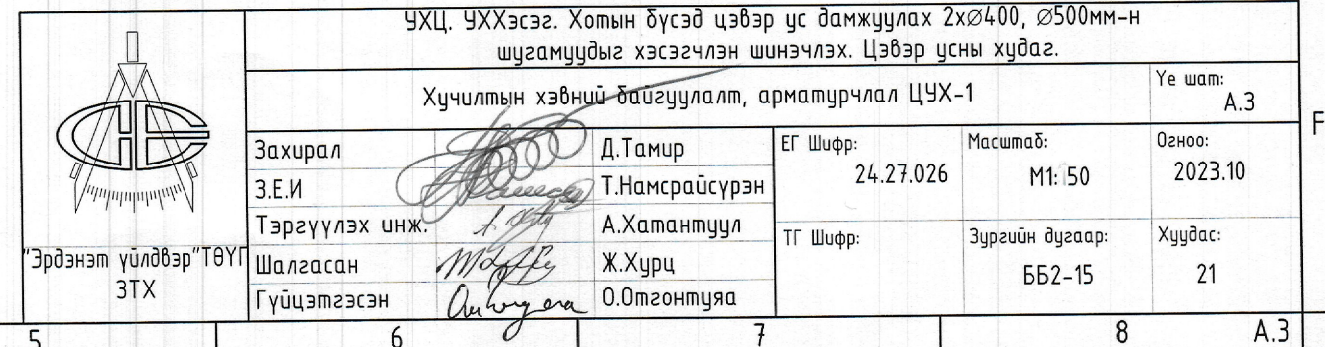 УХЦ. УХХэсэг. Хотын бүсэд цэвэр ус дамжуулах 2х∅400, ∅500мм-н
шугамуудыг хэсэгчлэн шинэчлэх. Цэвэр усны худаг.
Хучилтын хэвний байгуулалт, арматурчлал ЦУХ-1
Үе шат:
А.3
Захирал Д.Тамир
З.Е.И Т.Намсрайсүрэн
Тэргүүлэх инж. А.Хатантуул
Шалгасан Ж.Хурц
Гүйцэтгэсэн О.Отгонтуяа
ЕГ Шифр:
24.27.026
Масштаб:
М1:50
Огноо:
2023.10
ТГ Шифр:
Зургийн дугаар:
ББ2-15
Хуудас:
21
"Эрдэнэт үйлдвэр"ТӨҮГ
ЗТХ
F
5 6 7 8 А.3